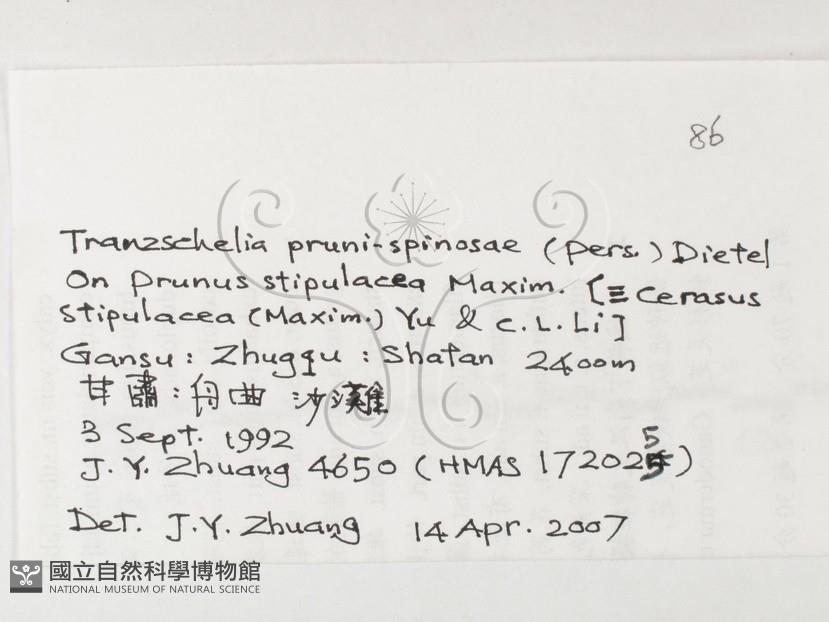 86
Tranzschelia pruni-spinosae (Pers.) Dietel
On Prunus stipulacea Maxim. [≡ Cerasus
stipulacea (Maxim.) Yu & C.L.Li]
Gansu : Zhugqu : Shatan 2400m
甘肅 : 舟曲 沙灘
3 Sept. 1992
J.Y. Zhuang 4650 (HMAS 172025)
Det. J.Y. Zhuang 14 Apr. 2007
國立自然科學博物館
NATIONAL MUSEUM OF NATURAL SCIENCE